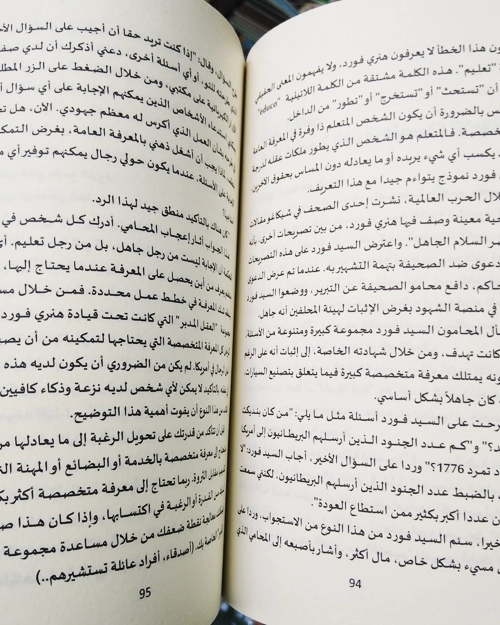 ون هذا الخطأ لا يعرفون هنري فورد، ولا يفهمون المعنى الحقيقي
"تعليم". هذه الكلمة مشتقة من الكلمة اللاتينية "educo"
أن "تستحث" أو "تستخرج" أو "تطور" من الداخل.
س بالضرورة أن يكون الشخص المتعلم ذا وفرة في المعرفة العامة
تخصصة. فالمتعلم هو الشخص الذي يطور ملكات عقله لدرجة
يكسب أي شيء يريده أو ما يعادله دون المساس بحقوق الآخرين
فورد نموذج يتواءم جيدا مع هذا التعريف.
لال الحرب العالمية، نشرت إحدى الصحف في شيكاغو مقالات
ية معينة وصف فيها هنري فورد، من بين تصريحات أخرى، بأنه
صر السلام الجاهل". واعترض السيد فورد على هذه التصريحات
دعوى ضد الصحيفة بتهمة التشهير به. عندما تم عرض الدعوى
حاكم، دافع محامو الصحيفة عن التبرير، ووضعوا السيد فورد
في منصة الشهود بغرض الإثبات لهيئة المحلفين أنه جاهل.
أل المحامون السيد فورد مجموعة كبيرة ومتنوعة من الأسئلة
كانت تهدف، ومن خلال شهادته الخاصة، إلى إثبات أنه على الرغم
ونه يمتلك معرفة متخصصة كبيرة فيما يتعلق بتصنيع السيارات،
كان جاهلاً بشكل أساسي.
رحت على السيد فورد أسئلة مثل ما يلي: "من كان بنديكت
د؟" و"كم عدد الجنود الذين أرسلهم البريطانيون إلى أمريكا
د تمرد 1776؟" وردا على السؤال الأخير، أجاب السيد فورد: "لا
بالضبط عدد الجنود الذين أرسلهم البريطانيون، لكني سمعت
ن عددا أكبر بكثير ممن استطاع العودة".
خيرا، سئم السيد فورد من هذا النوع من الاستجواب، وردا على
مسيء بشكل خاص، مال أكثر، وأشار بأصبعه إلى المحامي الذي
94
السؤال، وقال: "إذا كنت تريد حقا أن أجيب على السؤال الأحمق
أو أي أسئلة أخرى، دعني أذكرك أن لدي
على مكتبي، ومن خلال الضغط على الزر
الأشخاص الذين يمكنهم الإجابة على أي سؤال
بشأن العمل الذي أكرس له معظم جهودي. الآن، هل
يجب أن أشغل ذهني بالمعرفة العامة، بغرض
الأسئلة، عندما يكون حولي رجال يمكنهم توفير أي
هناك بالتأكيد منطق جيد لهذا الرد.
الجواب أثار إعجاب المحامي. أدرك كل شخص في
أن الإجابة ليست من رجل جاهل، بل من رجل تعليم. أي
يعرف من أين يحصل على المعرفة عندما يحتاج إليها،
تلك المعرفة في خطط عمل محددة. فمن خلال
"العقل المدبر" التي كانت تحت قيادة هنري فورد
المعرفة المتخصصة التي يحتاجها لتمكينه من أن
في أمريكا. لم يكن من الضروري أن يكون لديه هذه
بالتأكيد لا يمكن لأي شخص لديه نزعة وذكاء كافيين
هذا النوع أن يفوت أهمية هذا التوضيح.
تتأكد من قدرتك على تحويل الرغبة إلى ما يعادلها
معرفة متخصصة بالخدمة أو البضائع أو المهنة
الثروة، ربما تحتاج إلى معرفة متخصصة أكثر
أو الرغبة في اكتسابها، وإذا كان هذا
معالجة نقطة ضعفك من خلال مساعدة مجموعة
بك. (أصدقاء، أفراد عائلة تستشيرهم..)
95